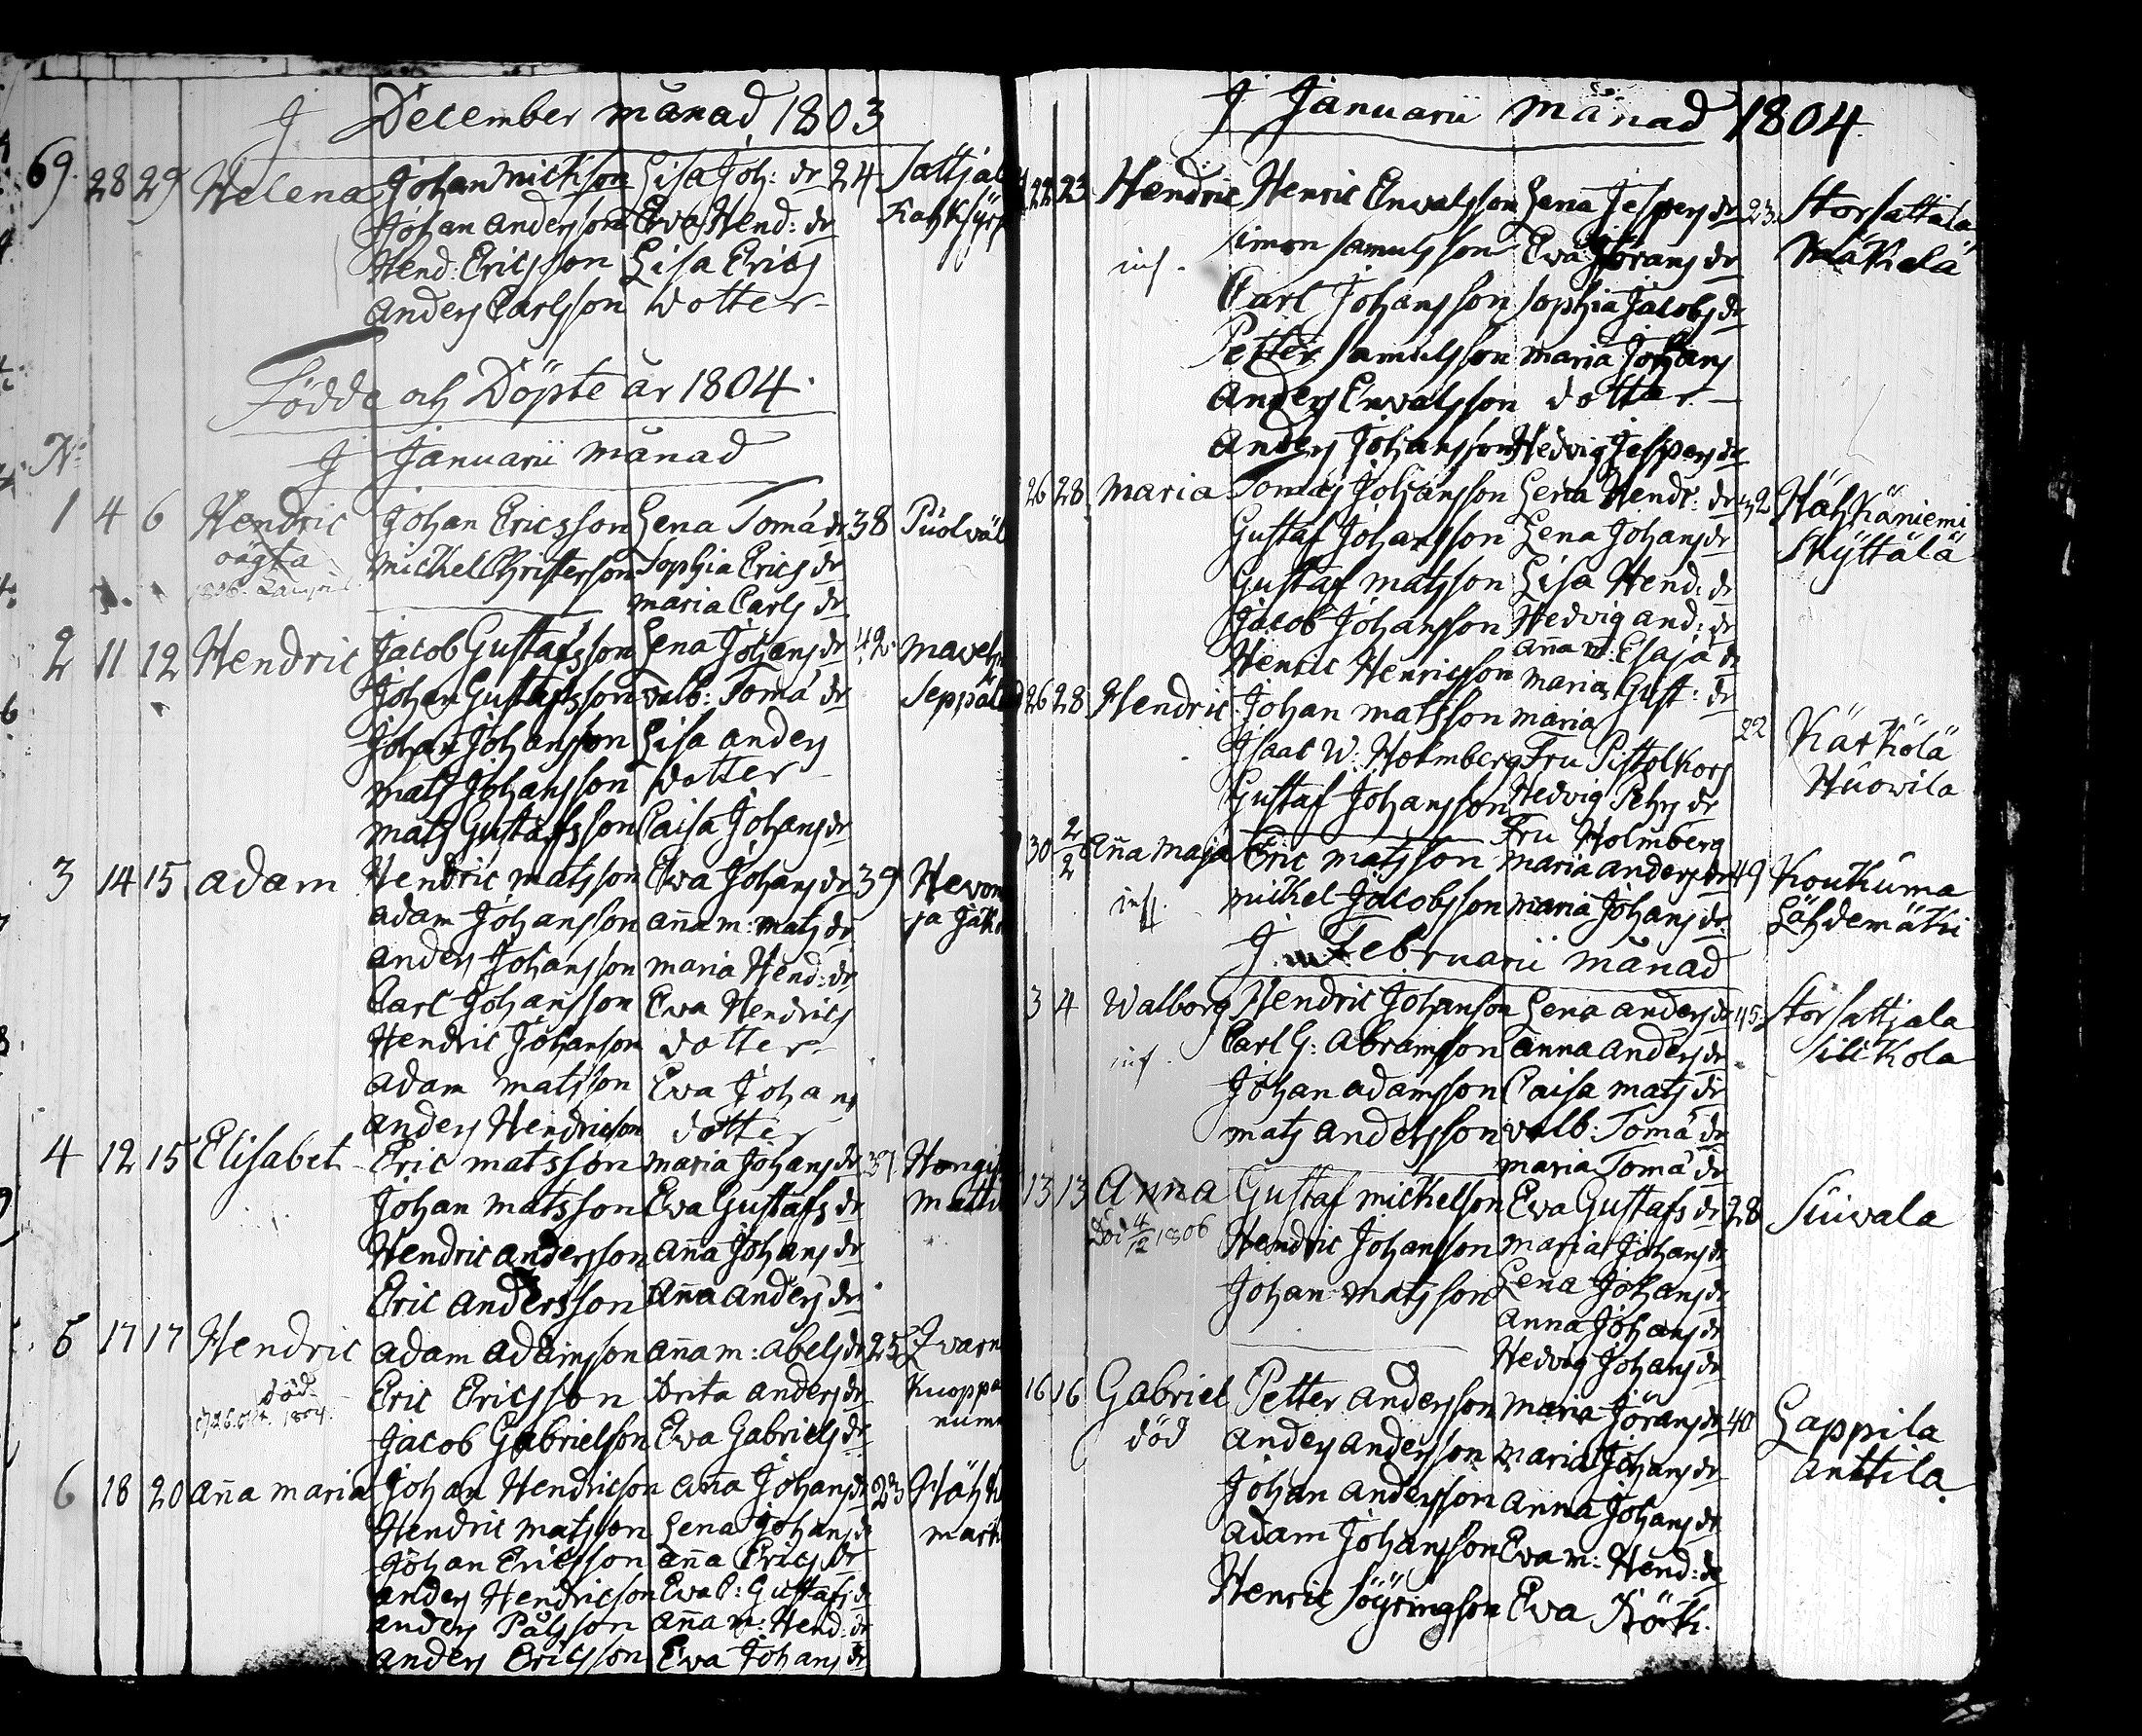 J December månad 1803
69. 28 29 Helena Johan Mickson Lisa Joh: dr 24 Sattjal
Johan Andersson Ewa Hend: dr
Hend: Ericsson Lisa Erics
Anders Carlsson Dotter
Födde och Döpte år 1804.
No
J Januarii månad
1 4 6 Hendric Johan Ericsson Lena Tomä dr 38 Puolväl
oägta Mickel Christersson Sophia Erics dr
1806. Maria Carls dr
2 11 12 Hendric Jacob Gustafsson Lena Johans dr 42.
Johan Gustafsson Valb: Tomä dr Seppäl
Johan Johansson Lisa Anders
Mats Johansson Dotter
Mats Gustafsson Caisa Johans dr
3 14 15 Adam Hendric Matsson Ewa Johans dr 39 Hevon
Adam Johansson Aña M: Mats dr
Anders Johansson Maria Hend: dr
Carl Johansson Ewa Hendrics
Hendric Johanson Dotter
Adam Matsson Ewa Johans
Anders Hendricson Dotter
4 12 15 Elisabet Eric Matsson Maria Johans dr 37. Hongis
Johan Matsson Ewa Gustafs dr Matti
Hendric Andersson Aña Johans dr
Eric Andersson Aña Anders dr
5 17 17 Hendric Adam Adamsson Aña M: Abels dr 25 Qvarn
död Eric Ericsson Brita Anders dr Kuoppa
1804. Jacob Gabrielson Ewa Gabriels dr
6 18 20 Aña Maria Johan Hendricson Aña Johans dr 23 Häh
Hendric Matsson Lena Johans dr
Johan Ericsson Aña Erics dr
Anders Hendricson Ewa C: Gustafs dr
Anders Pålsson Aña M: Hend: dr
Anders Ericsson Ewa Johans dr
J Januarii Månad 1804.
22 23 Hendric Henric Enwalsson Lena Jespers dr 23. Storsattiala
inf. Simon Samulsson Ewa Jörans dr Mäkelä
Carl Johansson Sophia Jacobs dr
Petter Samulsson Maria Johans
Anders Enwalsson Dotter
Anders Johansson Hedvig Jespers dr
26 28 Maria Tomas Johansson Lena Hendr: dr 32 Hähkäniemi
Gustaf Johansson Lena Johans dr Skyttälä
Gustaf Matsson Lisa Hend: dr
Jacob Johansson Hedvig And: dr
Aña M: Esajä dr
Henric Henricsson Maria Gust: dr
26 28 Hendric Johan Matsson Maria 22 Kärkölä
Isaac W. Holmberg Fru Pistolkors Huovila
Gustaf Johansson Hedvig Pehrs dr
Fru Holmberg
30 2/2 Aña Maja Eric Matsson Maria Anders dr 49 Koukuma
inf. Mickel Jacobsson Maria Johans dr Lähdemäki
J Februarii Månad
3 4 Walborg Hendric Johanson Lena Anders dr 45. Storsattjala
inf. Carl G: Abramsson Anna Anders dr Silikola
Johan Adamsson Caisa Mats dr
Mats Andersson Valb: Tomä dr
Maria Tomä dr
13 13 Anna Gustaf Mickelson Ewa Gustafs dr 28 Suivala
Död 4/12 1806 Hendric Johansson Maria Johans dr
Johan Matsson Lena Johans dr
Anna Johans dr
Hedvig Johans dr
16 16 Gabriel Petter Andersson Maria Jörans dr 40 Lappila
död Anders Andersson Maria Johans dr Anttila.
Johan Andersson Anna Johans dr
Adam Johansson Ewa M: Hend: dr
Henric Söyringson Ewa